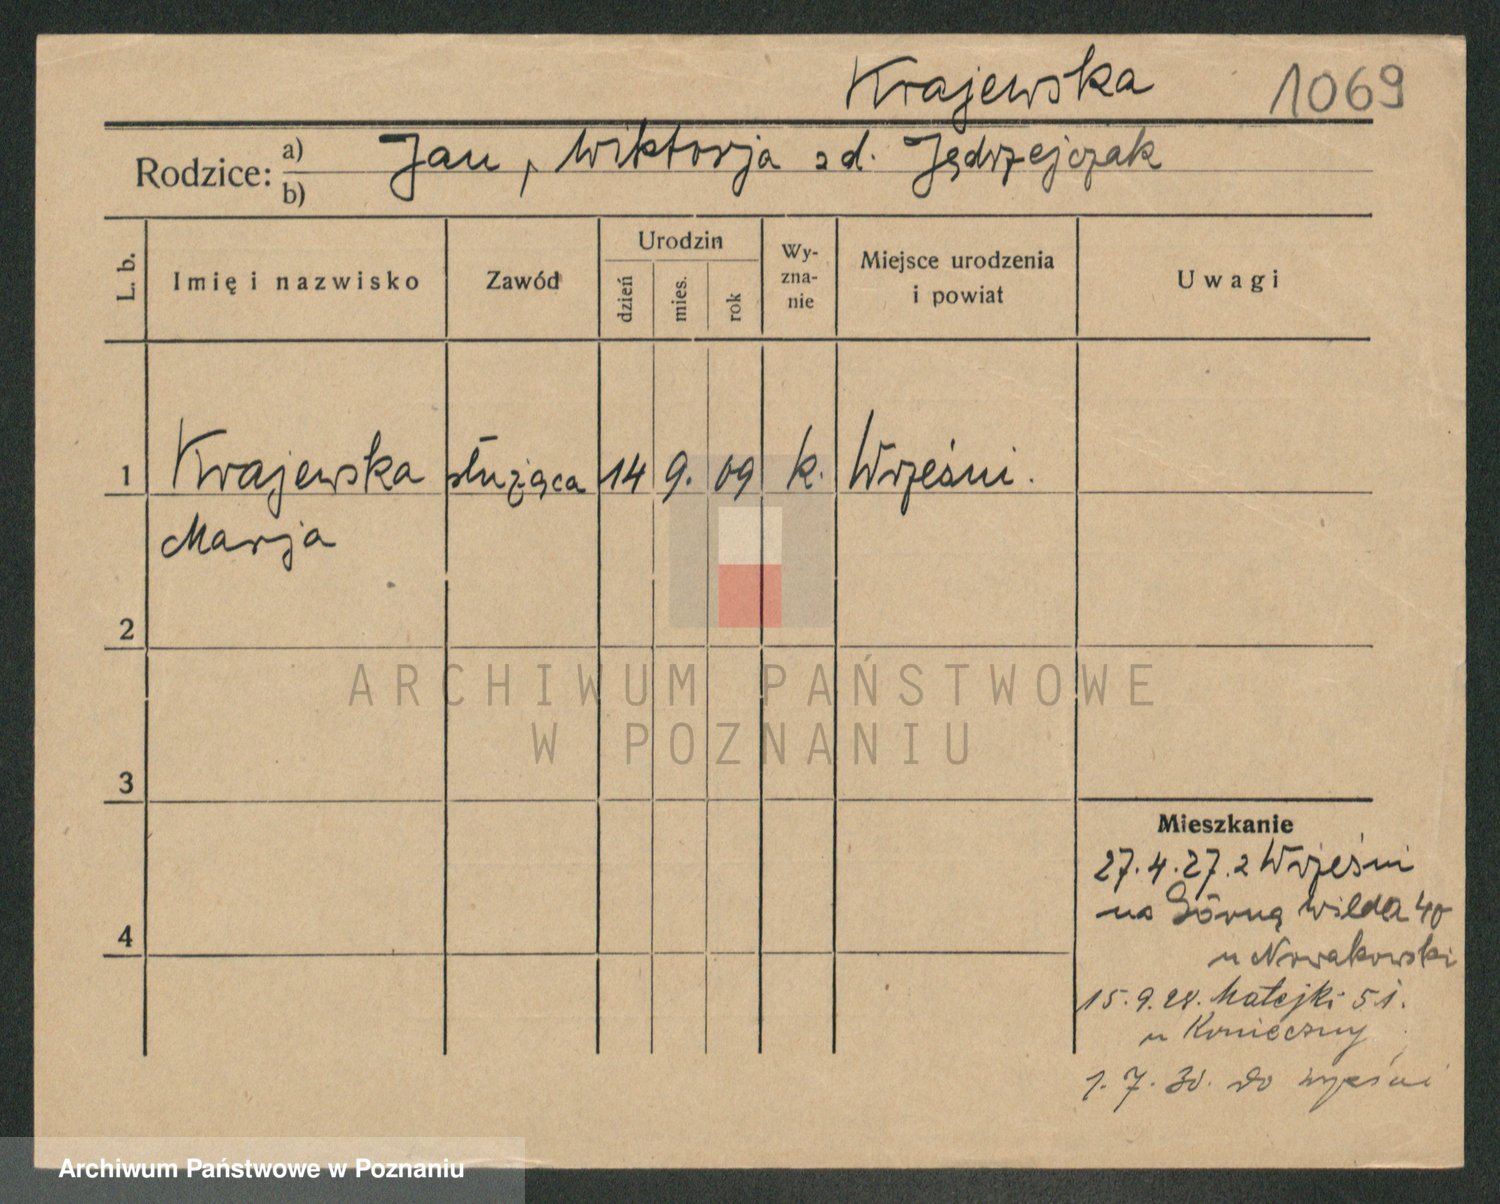 Krajewska 1069
Rodzice: a) b) Jan, Wiktorja zd. Jędrzejczak
L. b. Imię i nazwisko Zawód Urodzin dzień mies. rok Wy-zna-nie Miejsce urodzenia i powiat Uwagi
1 Krajewska służąca 14 9. 09 k. Wrześni.
Marja
2
ARCHIWUM PAŃSTWOWE
W POZNANIU
3
Mieszkanie
27.4.27. z Wrześni
na Górną Wildą 40
u Nowakowski
4
15.9.28. Matejki 51.
u Konieczny
1.7.30. do Wrześni
Archiwum Państwowe w Poznaniu